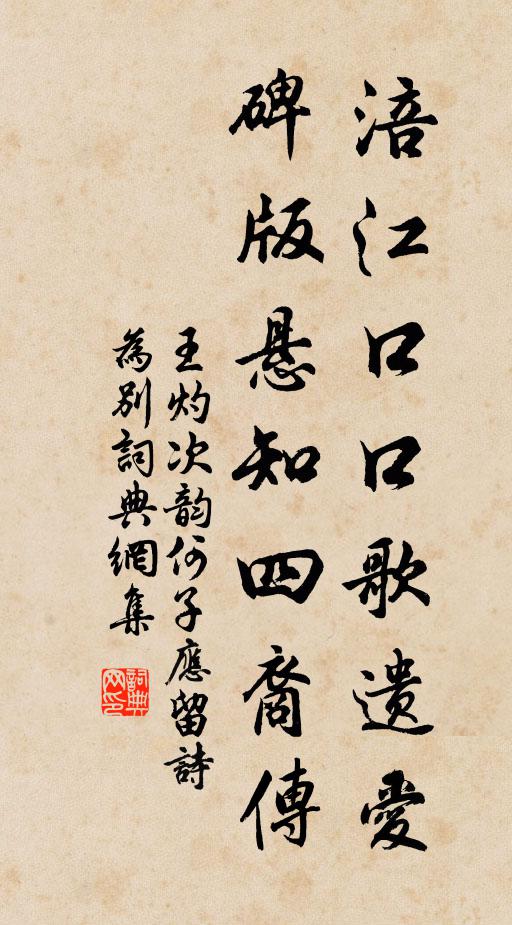 涪江口口歌遗愛
碑版悬知四裔傳
王灼次韵何子應留詩
為别詞典網集
詞典网印